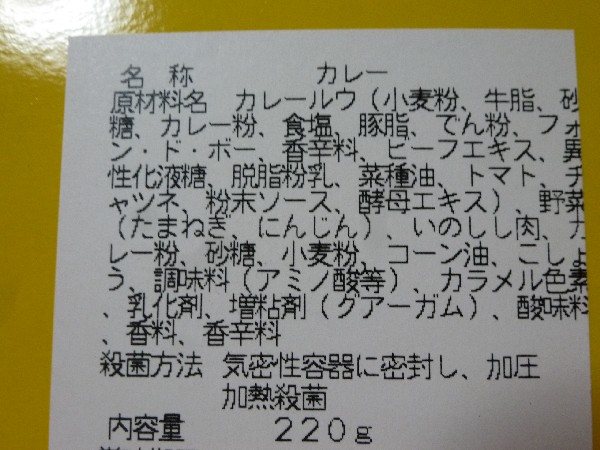 名 称 カレー
原材料名 カレールウ（小麦粉、牛脂、砂
糖、カレー粉、食塩、豚脂、でん粉、フォ
ン・ド・ボー、香辛料、ビーフエキス、異
性化液糖、脱脂粉乳、菜種油、トマト、チ
ャツネ、粉末ソース、酵母エキス）、野菜
（たまねぎ、にんじん）、いのしし肉、カ
レー粉、砂糖、小麦粉、コーン油、こしょ
う、調味料（アミノ酸等）、カラメル色素
、乳化剤、増粘剤（グアーガム）、酸味料
、香料、香辛料
殺菌方法 気密性容器に密封し、加圧
加熱殺菌
内容量 ２２０ｇ